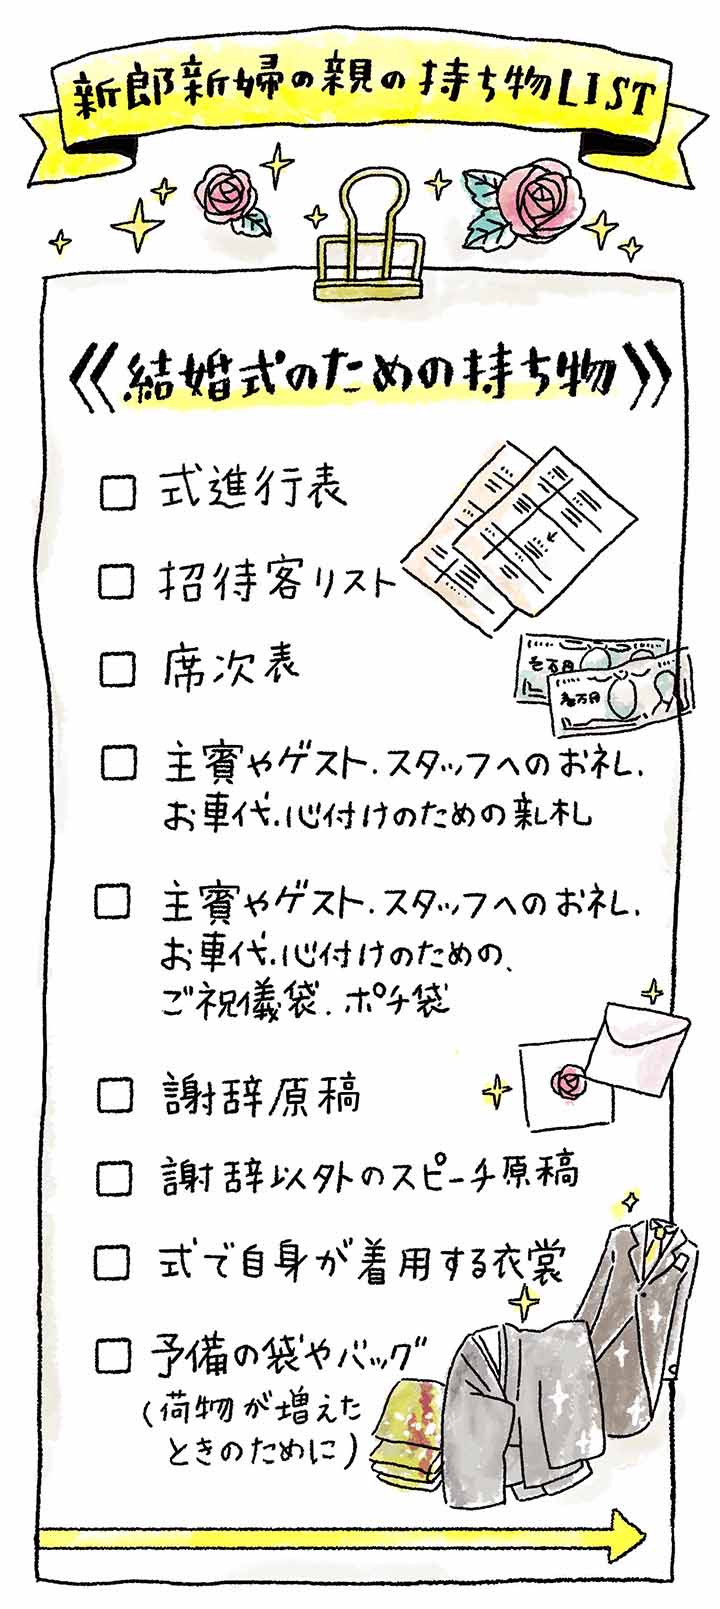 新郎新婦の親の持ち物LIST
《結婚式のための持ち物》
□ 式進行表
□ 招待客リスト
□ 席次表
壱万円
壱万円
□ 主賓やゲスト、スタッフへのお礼、
お車代、心付けのための新札
□ 主賓やゲスト、スタッフへのお礼、
お車代、心付けのための、
ご祝儀袋、ポチ袋
□ 謝辞原稿
□ 謝辞以外のスピーチ原稿
□ 式で自身が着用する衣裳
□ 予備の袋やバッグ
(荷物が増えた
ときのために)